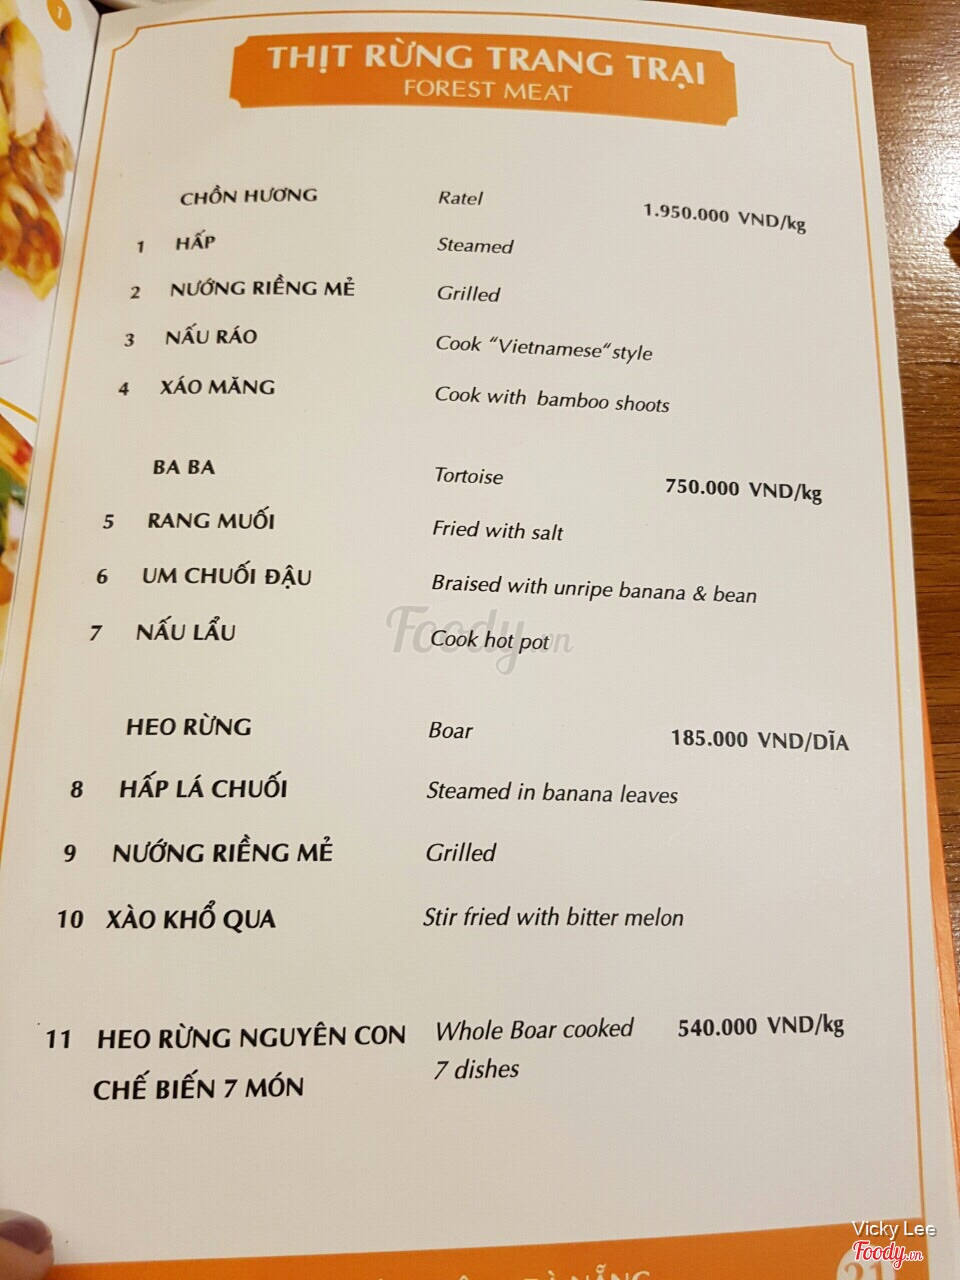 1
THỊT RỪNG TRANG TRẠI
FOREST MEAT
CHỒN HƯƠNG Ratel 1.950.000 VND/kg
1 HẤP Steamed
2 NƯỚNG RIỀNG MẺ Grilled
3 NẤU RÁO Cook “Vietnamese“style
4 XÁO MĂNG Cook with bamboo shoots
BA BA Tortoise 750.000 VND/kg
5 RANG MUỐI Fried with salt
6 UM CHUỐI ĐẬU Braised with unripe banana & bean
7 NẤU LẨU Cook hot pot
Foody.vn
HEO RỪNG Boar 185.000 VND/DĨA
8 HẤP LÁ CHUỐI Steamed in banana leaves
9 NƯỚNG RIỀNG MẺ Grilled
10 XÀO KHỔ QUA Stir fried with bitter melon
11 HEO RỪNG NGUYÊN CON Whole Boar cooked 540.000 VND/kg
CHẾ BIẾN 7 MÓN 7 dishes
Vicky Lee
Foody.vn
ĐÀ NẴNG
21